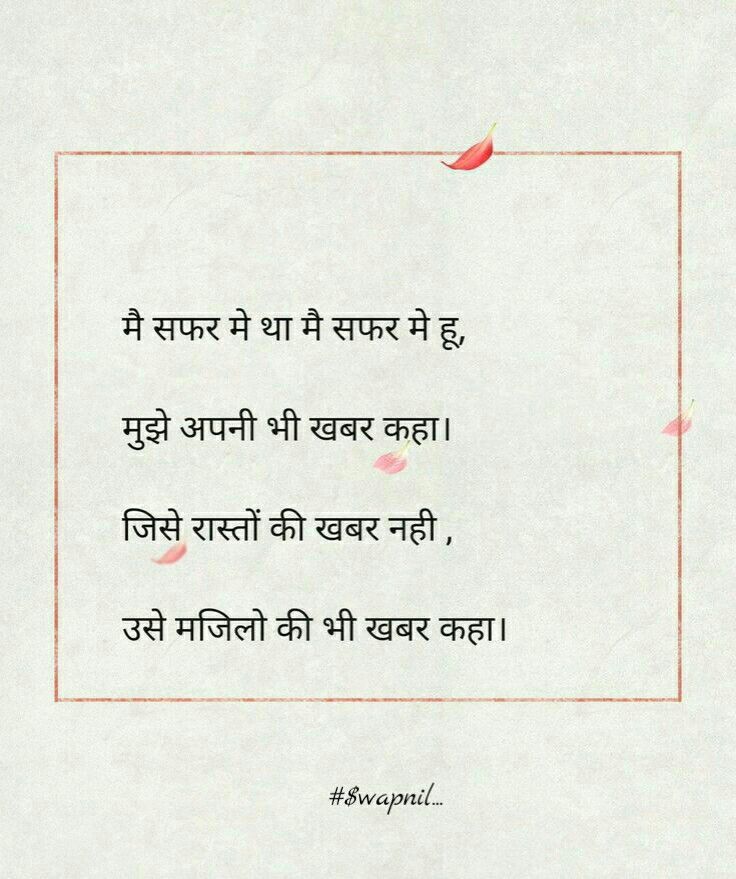 मै सफर मे था मै सफर मे हू,
मुझे अपनी भी खबर कहा।
जिसे रास्तों की खबर नही ,
उसे मजिलो की भी खबर कहा।
#$wapnil...